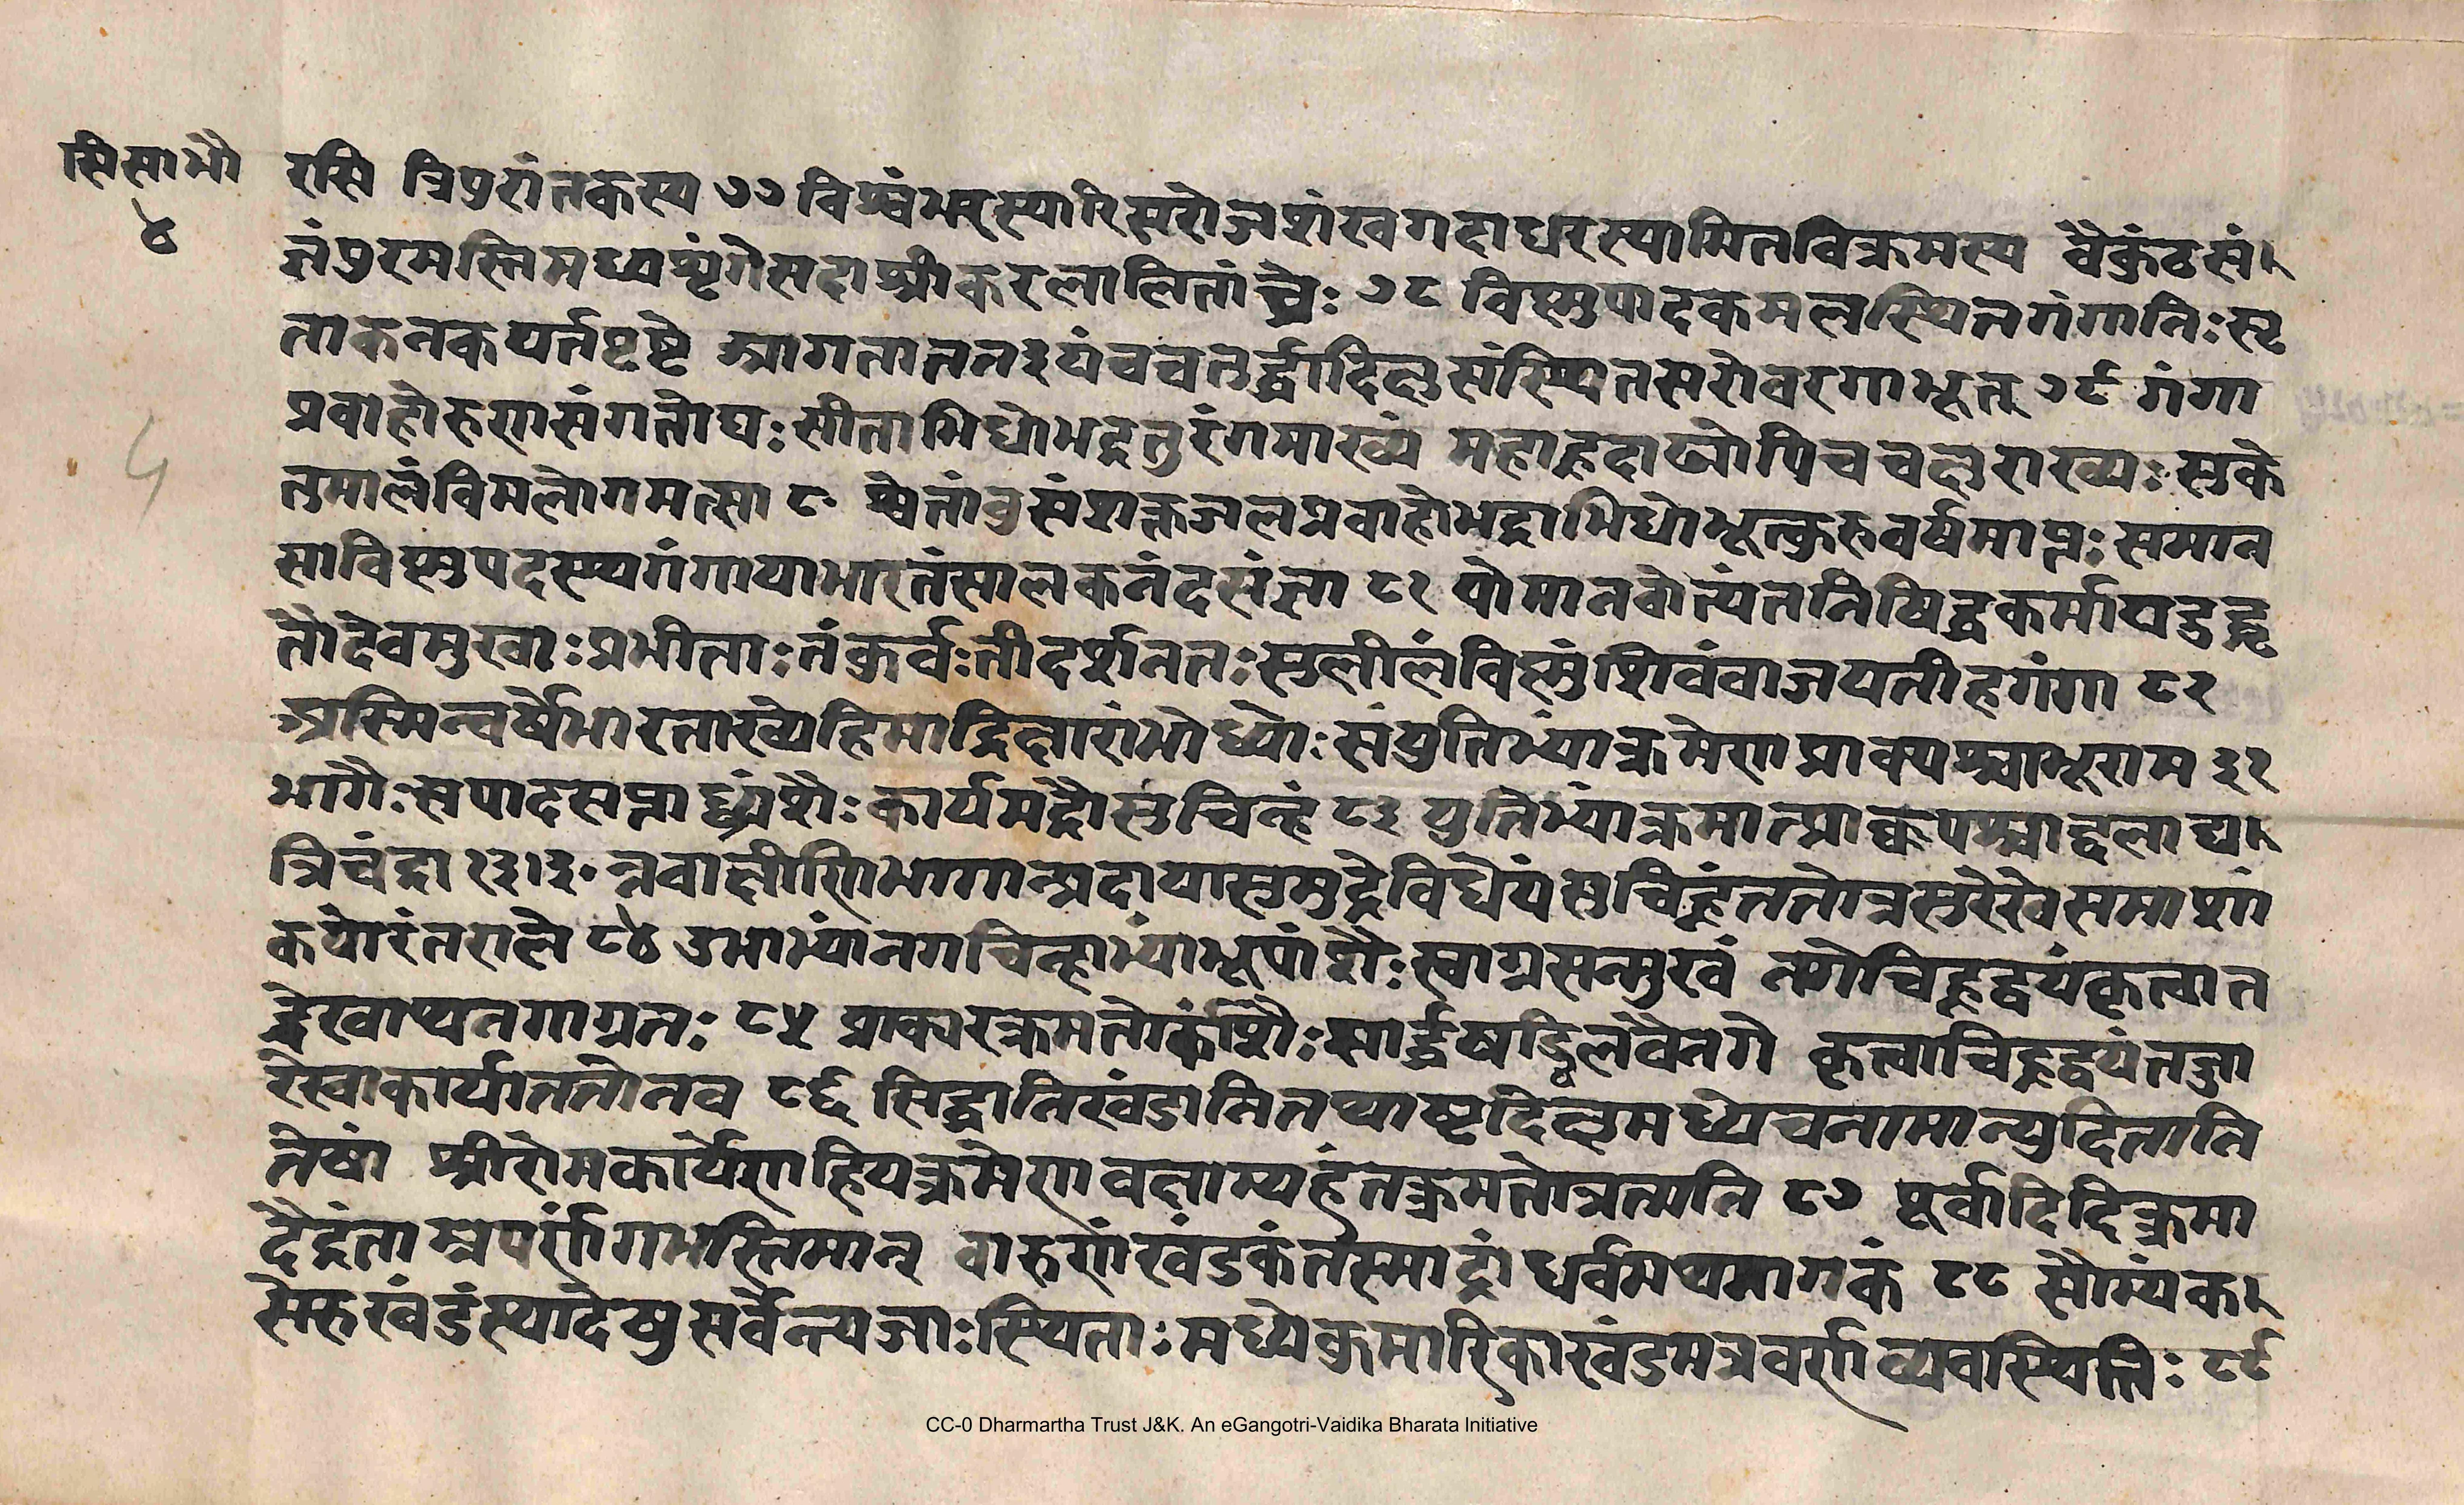 सि सा भौ
४
रसि त्रिपुरांतकस्य ७७ विश्वंभरस्यारिसरोजशंखगदाधरस्यामितविक्रमस्य वैकुंठसं
ज्ञंपुरमस्तिमध्यशृंगेसदाश्रीकरलालितांघ्रेः ७८ विष्णुपादकमलस्थितगंगानिःसृ
ताकनकपर्वतपृष्टे आगताननु३यंचचतुर्द्धादिक्षुसंस्थितसरोवरगाभूत् ७९ गंगा
प्रवाहोरुणसंगतोघः सीताभिधोभद्रतुरंगमाख्यं महाह्रदाख्योपिचचक्षुराख्यः सुके
तुमालंविमलोगमत्सा ८० श्वेतांबुसंशक्तजलप्रवाहोभद्राभिधोभूत्कुरुवर्षमाप्तः समान
साविष्णुपदस्यगंगायाभारतंसालकनंदसंज्ञा ८१ योमानवोत्यंतनिषिद्धकर्माघडुद्धृ
तौदेवमुखाः प्रभीताः तंकुर्वःतीदर्शनतः सुलीलंविष्णुंशिवंवाजयतीहगंगा ८२
अस्मिन्वर्षेभारताख्येहिमाद्रिक्षारांभोध्योः संयुतिभ्यांक्रमेण प्राक्पश्चाभूराम ३१
भागैः सपादसप्ताद्ध्यंशैः कार्यमद्रौसुचिन्हं ८३ युतिभ्यांक्रमात्प्राक्कपश्चाद्दलाढ्य
त्रिचंद्रा १३।३० न्नवाक्षीणिभागान्प्रदायास्समुद्रेविधेयंसुचिह्नंततोत्रसुरेखेसमाशां
कयोरंतराले ८४ उभाभ्यांनगचिन्हाभ्यांभूपांशैः स्वाग्रसन्मुखं नगेचिह्नद्वयंकृत्वात
द्रेखाप्यनगाग्रतः ८५ प्राकारक्रमतोकांशैः सार्द्धषड्भिर्लवैनगे कृत्वाचिह्नद्वयंतज्ञा
रेखाकार्याततोनव ८६ सिद्धानिखंडानितथाष्टदिक्षुमध्येचनामान्युदितानि
तेषां श्रीरोमकार्येणहियक्रमेणवक्षाम्यहंतक्रमतोत्रतत्मति ८७ पूर्वादिदिक्क्रमा
दैद्रंताम्रपर्णंगभस्तिमान् वारुणंखंडकंतस्माद्गांधर्वमथनागकं ८८ सौम्यंक
सेरुखंडंस्यादेषुसर्वेन्त्यजाः स्थिताः मध्येकुमारिकाखंडमत्रवर्णव्यवस्थितिः ८९
५
CC-0 Dharmartha Trust J&K. An eGangotri-Vaidika Bharata Initiative